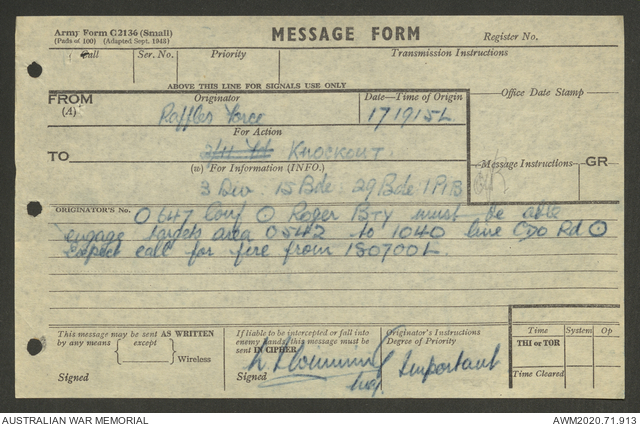 Army Form C2136 (Small)
(Pads of 100) (Adapted Sept. 1943)
MESSAGE FORM
Register No.
Call
Ser. No.
Priority
Transmission Instructions
ABOVE THIS LINE FOR SIGNALS USE ONLY
FROM
(A)
Originator
Raffles Force
Date—Time of Origin
171915L
Office Date Stamp
For Action
TO
KNOCKOUT
(W) For Information (INFO.)
Message Instructions
GR
3 Div 15 Bde 29 Bde 1 PIB
ORIGINATOR'S No.
O 647 Conf ⊙ Roger Bty must be able
engage targets area 0542 to 1040 line CDO Rd ⊙
Expect call for fire from 180700L.
This message may be sent AS WRITTEN
by any means
except
Wireless
Signed
If liable to be intercepted or fall into
enemy hands, this message must be
sent IN CIPHER.
Signed
Originator's Instructions
Degree of Priority
Important
Time
System
Op
THI or TOR
Time Cleared
AUSTRALIAN WAR MEMORIAL
AWM2020.71.913